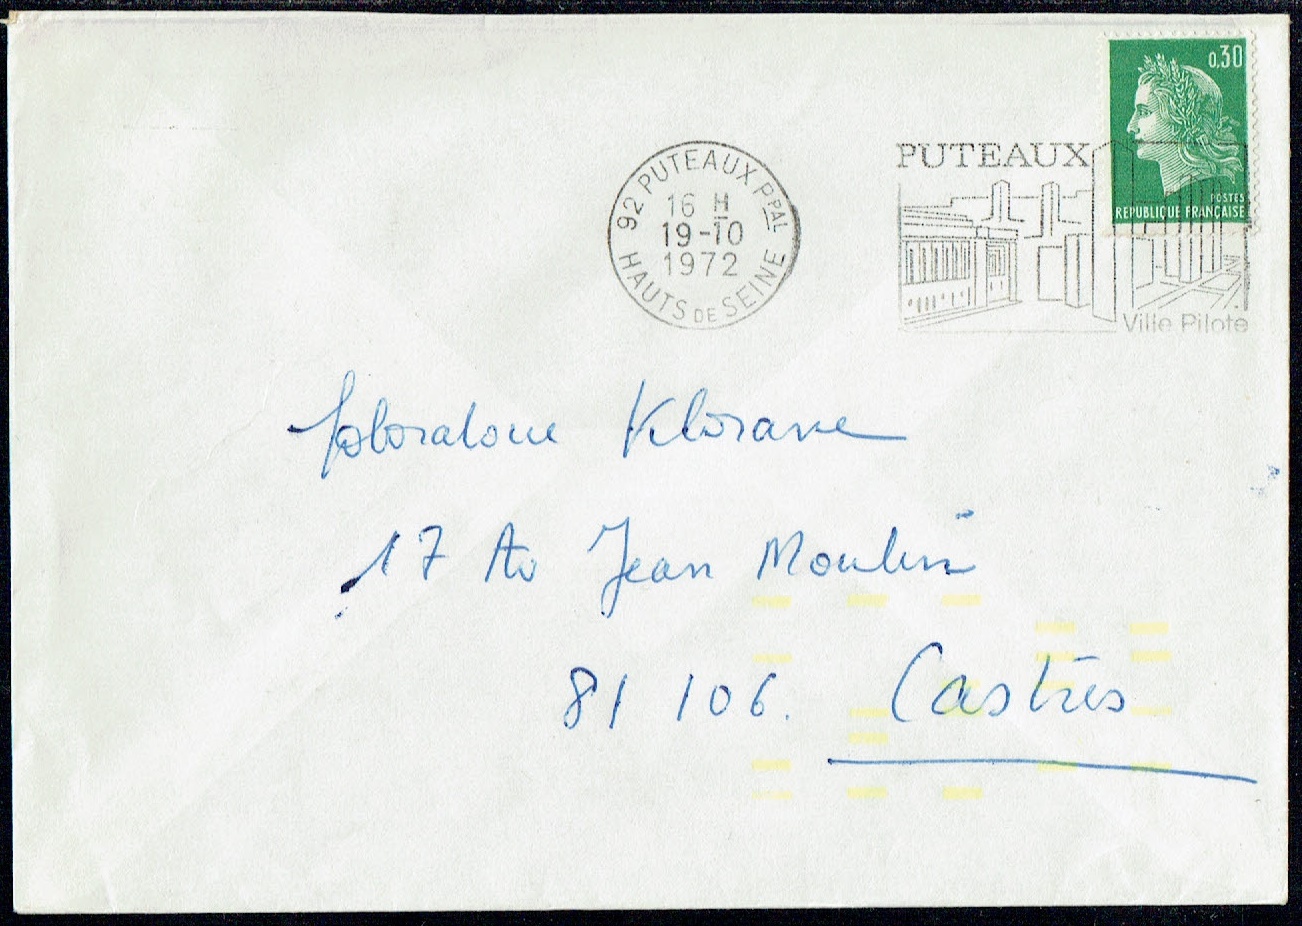 0,30
POSTES
REPUBLIQUE FRANÇAISE
92 PUTEAUX PPAL
16 H
19-10
1972
HAUTS DE SEINE
PUTEAUX
Ville Pilote
Laboratoire Klorane
17 Av Jean Moulin
81 106. Castres